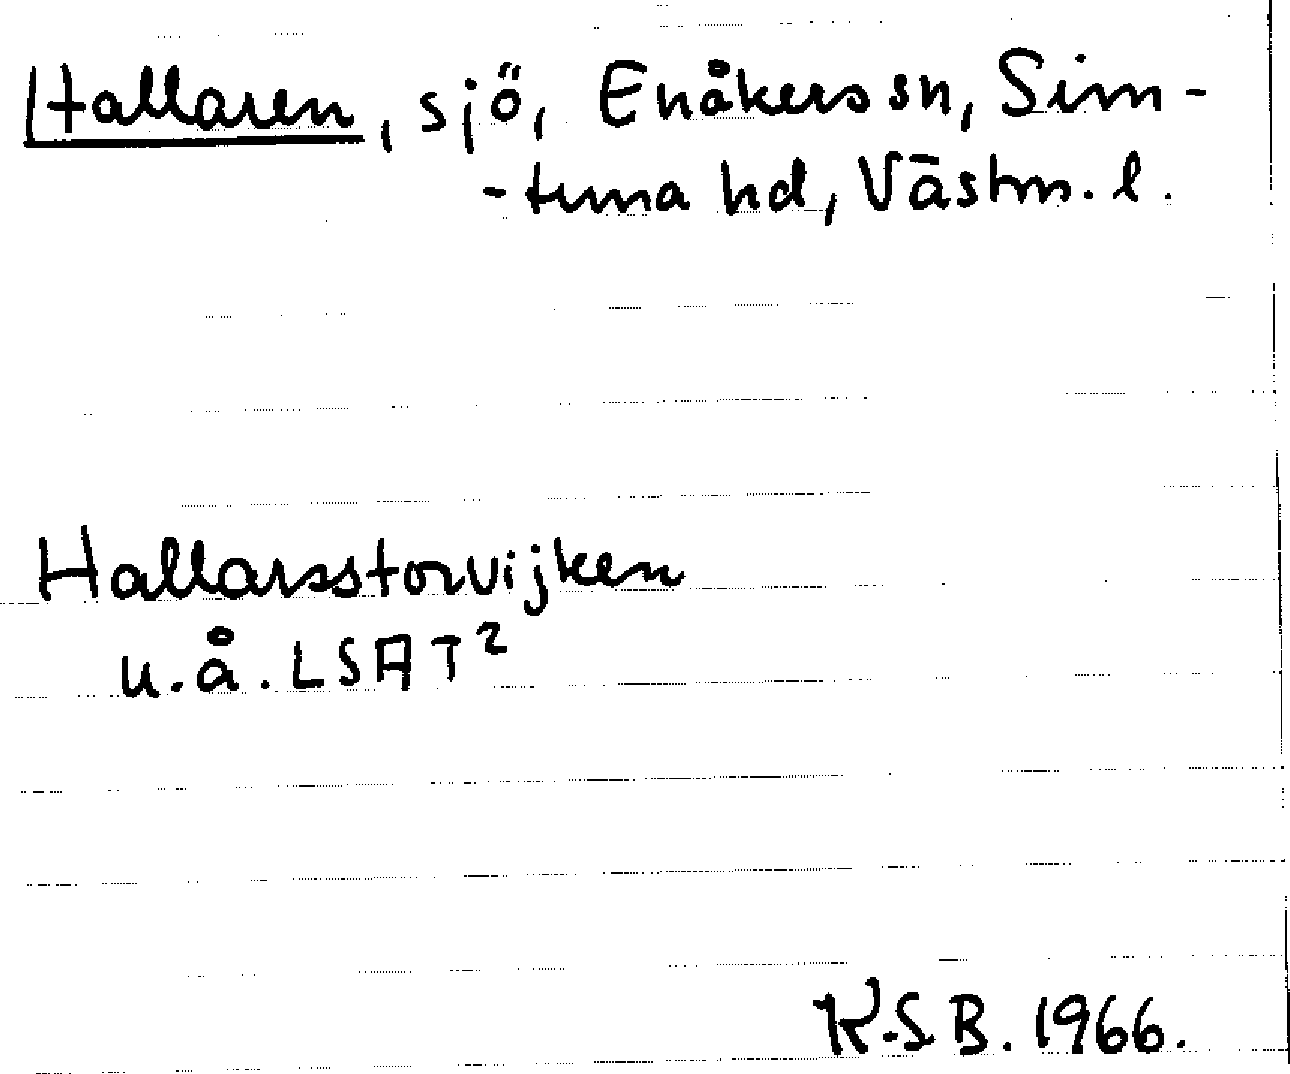 Hallaren, sjö, Enåkers sn, Sim-
-tuna hd, Västm. l.
Hallarsstorvijken
u.å. LSA T²
K.S.B. 1966.